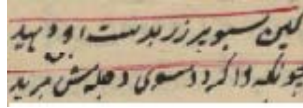 کین سبو پر زر بدست او دهید
چونکه واگردد سوی دجله‌ش برید